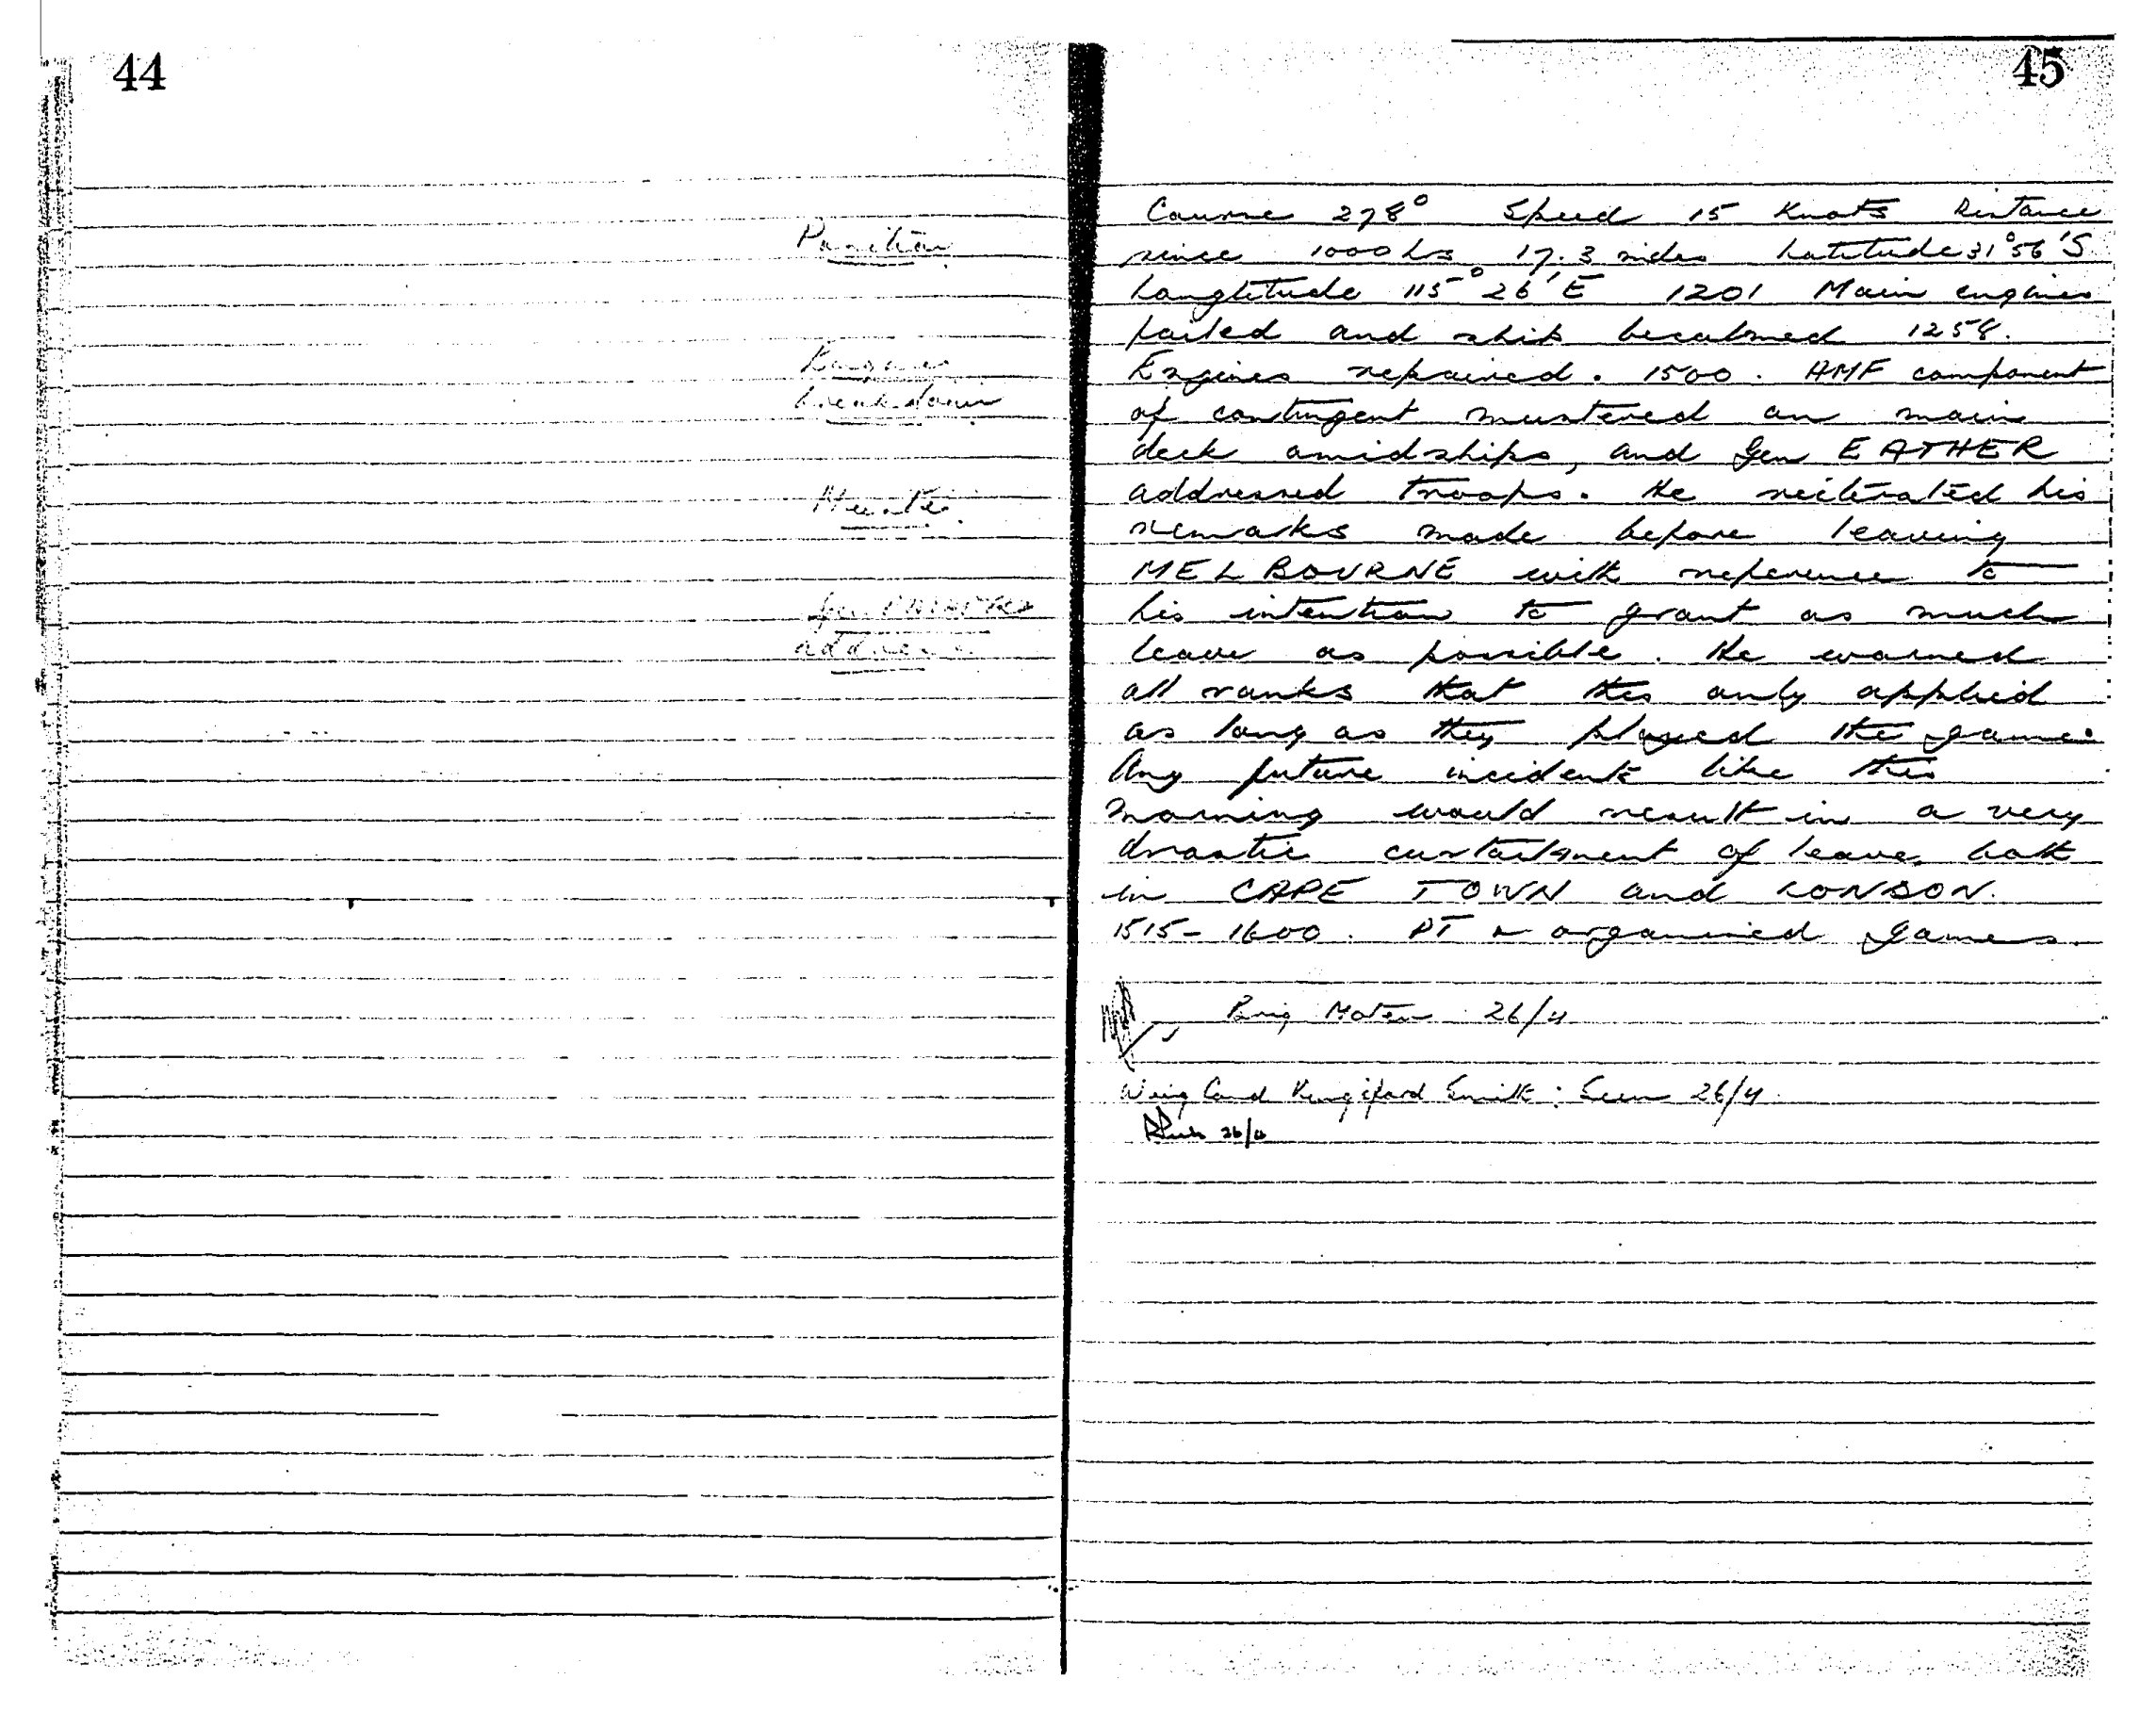 44
Position
Engines
breakdown
Muster
Gen EATHER'S
address
45
Course 278° Speed 15 Knots Distance
since 1000 hrs 17.3 miles Latitude 31°56'S
Longtitude 115°26'E 1201 Main engines
failed and ship becalmed 1258.
Engines repaired. 1500. AMF component
of contingent mustered on main
deck amidships, and Gen EATHER
addressed troops. He reiterated his
remarks made before leaving
MELBOURNE with reference to
his intention to grant as much
leave as possible. He warned
all ranks that this only applied
as long as they played the game.
Any future incidents like this
morning would result in a very
drastic curtailment of leave, both
in CAPE TOWN and LONDON.
1515-1600. PT & organised games.
Brig Moten 26/4
Wing Comd Kingsford Smith: Seen 26/4
26/4